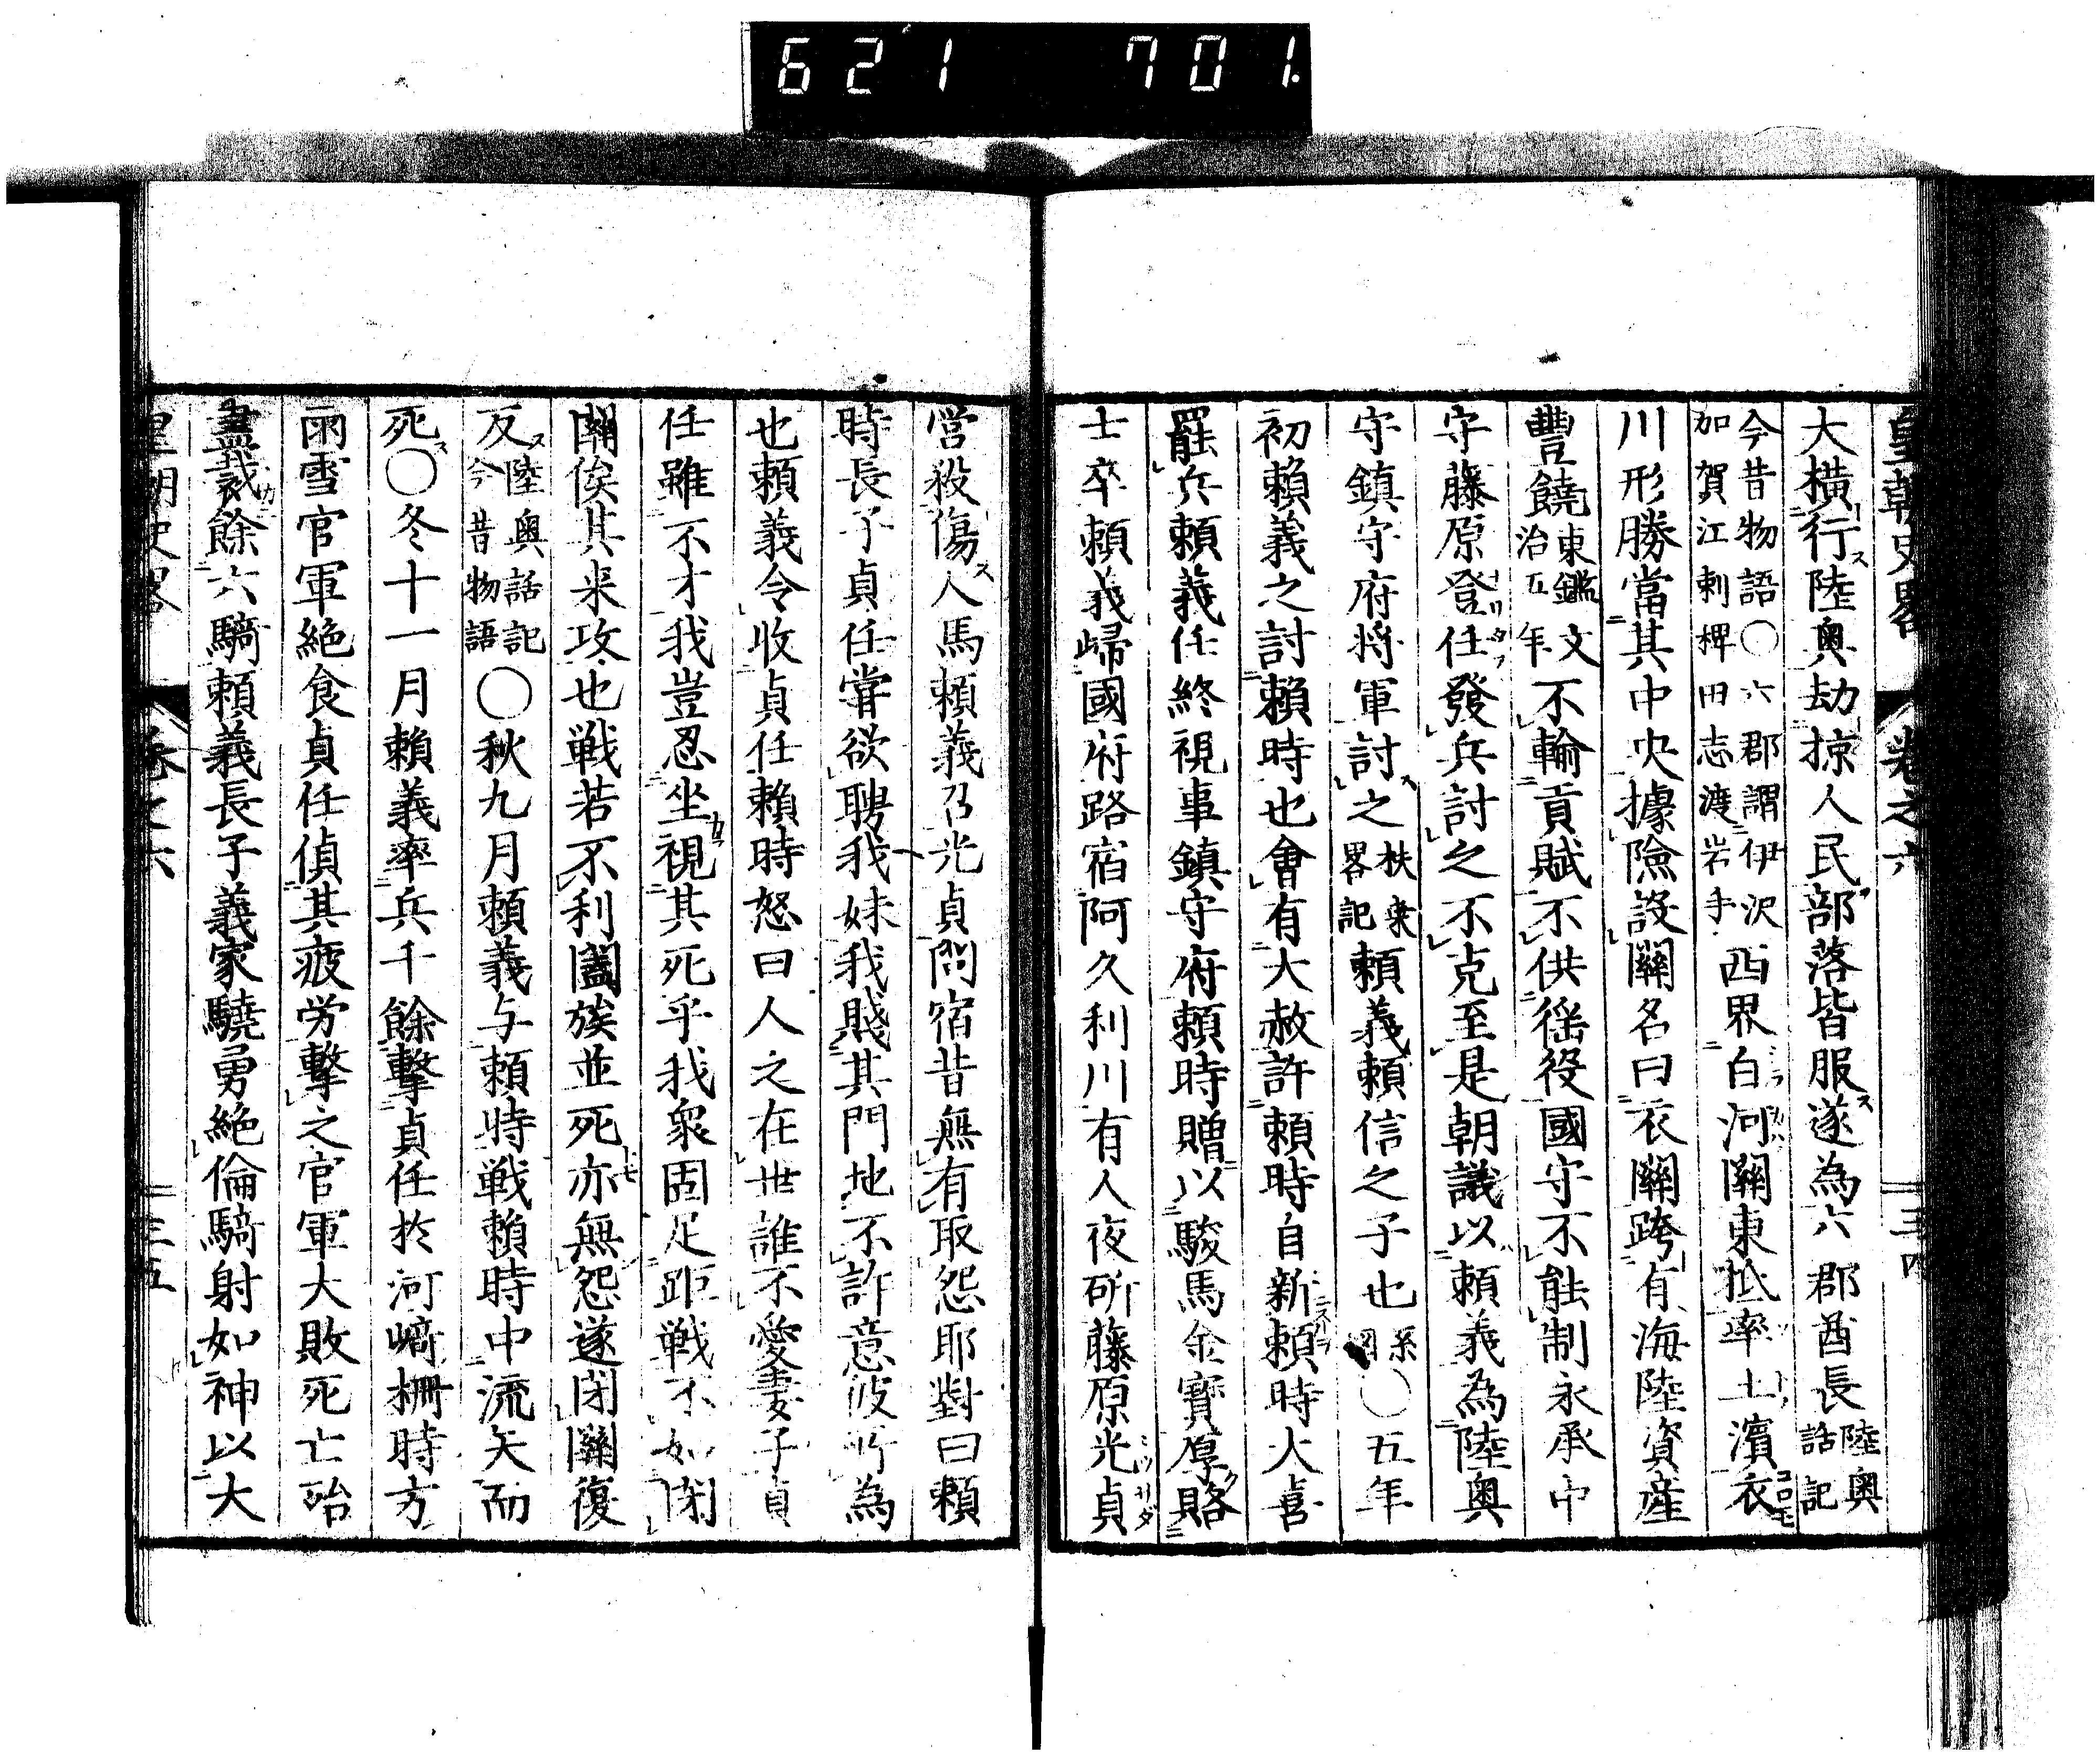 621 701.
皇朝史畧 卷之六 三十四
大橫行陸奥劫掠人民部落皆服遂為六郡酋長陸奥話記
今昔物語〇六郡謂伊沢加賀江刺稗田志渡岩手西界白河關東抵率土濱衣
川形勝當其中央據險設關名曰衣關跨有海陸資産
豐饒東鑑文治五年不輸貢賦不供徭役國守不能制永承中
守藤原登任發兵討之不克至是朝議以賴義為陸奥
守鎮守府将軍討之扶桒畧記賴義賴信之子也系圖〇五年
初賴義之討賴時也會有大赦許賴時自新賴時大喜
罷兵賴義任終視事鎮守府賴時贈以駿馬金寳厚賂
士卒賴義歸國府路宿阿久利川有人夜斫藤原光貞
営殺傷人馬賴義召光貞問宿昔無有取怨耶對曰賴
時長子貞任嘗欲聘我妹我賤其門地不許意彼所為
也賴義令收貞任賴時怒曰人之在世誰不愛妻子貞
任雖不才我豈忍坐視其死乎我衆固足距戦不如閉
關俟其来攻也戦若不利闔族並死亦無怨遂閉關復
反陸奥話記今昔物語〇秋九月賴義与賴時戦賴時中流矢而
死〇冬十一月賴義率兵千餘擊貞任於河﨑柵時方
雨雪官軍絶食貞任偵其疲労擊之官軍大敗死亡殆
盡裁餘六騎賴義長子義家驍勇絶倫騎射如神以大
皇朝史畧 卷之六 三十五